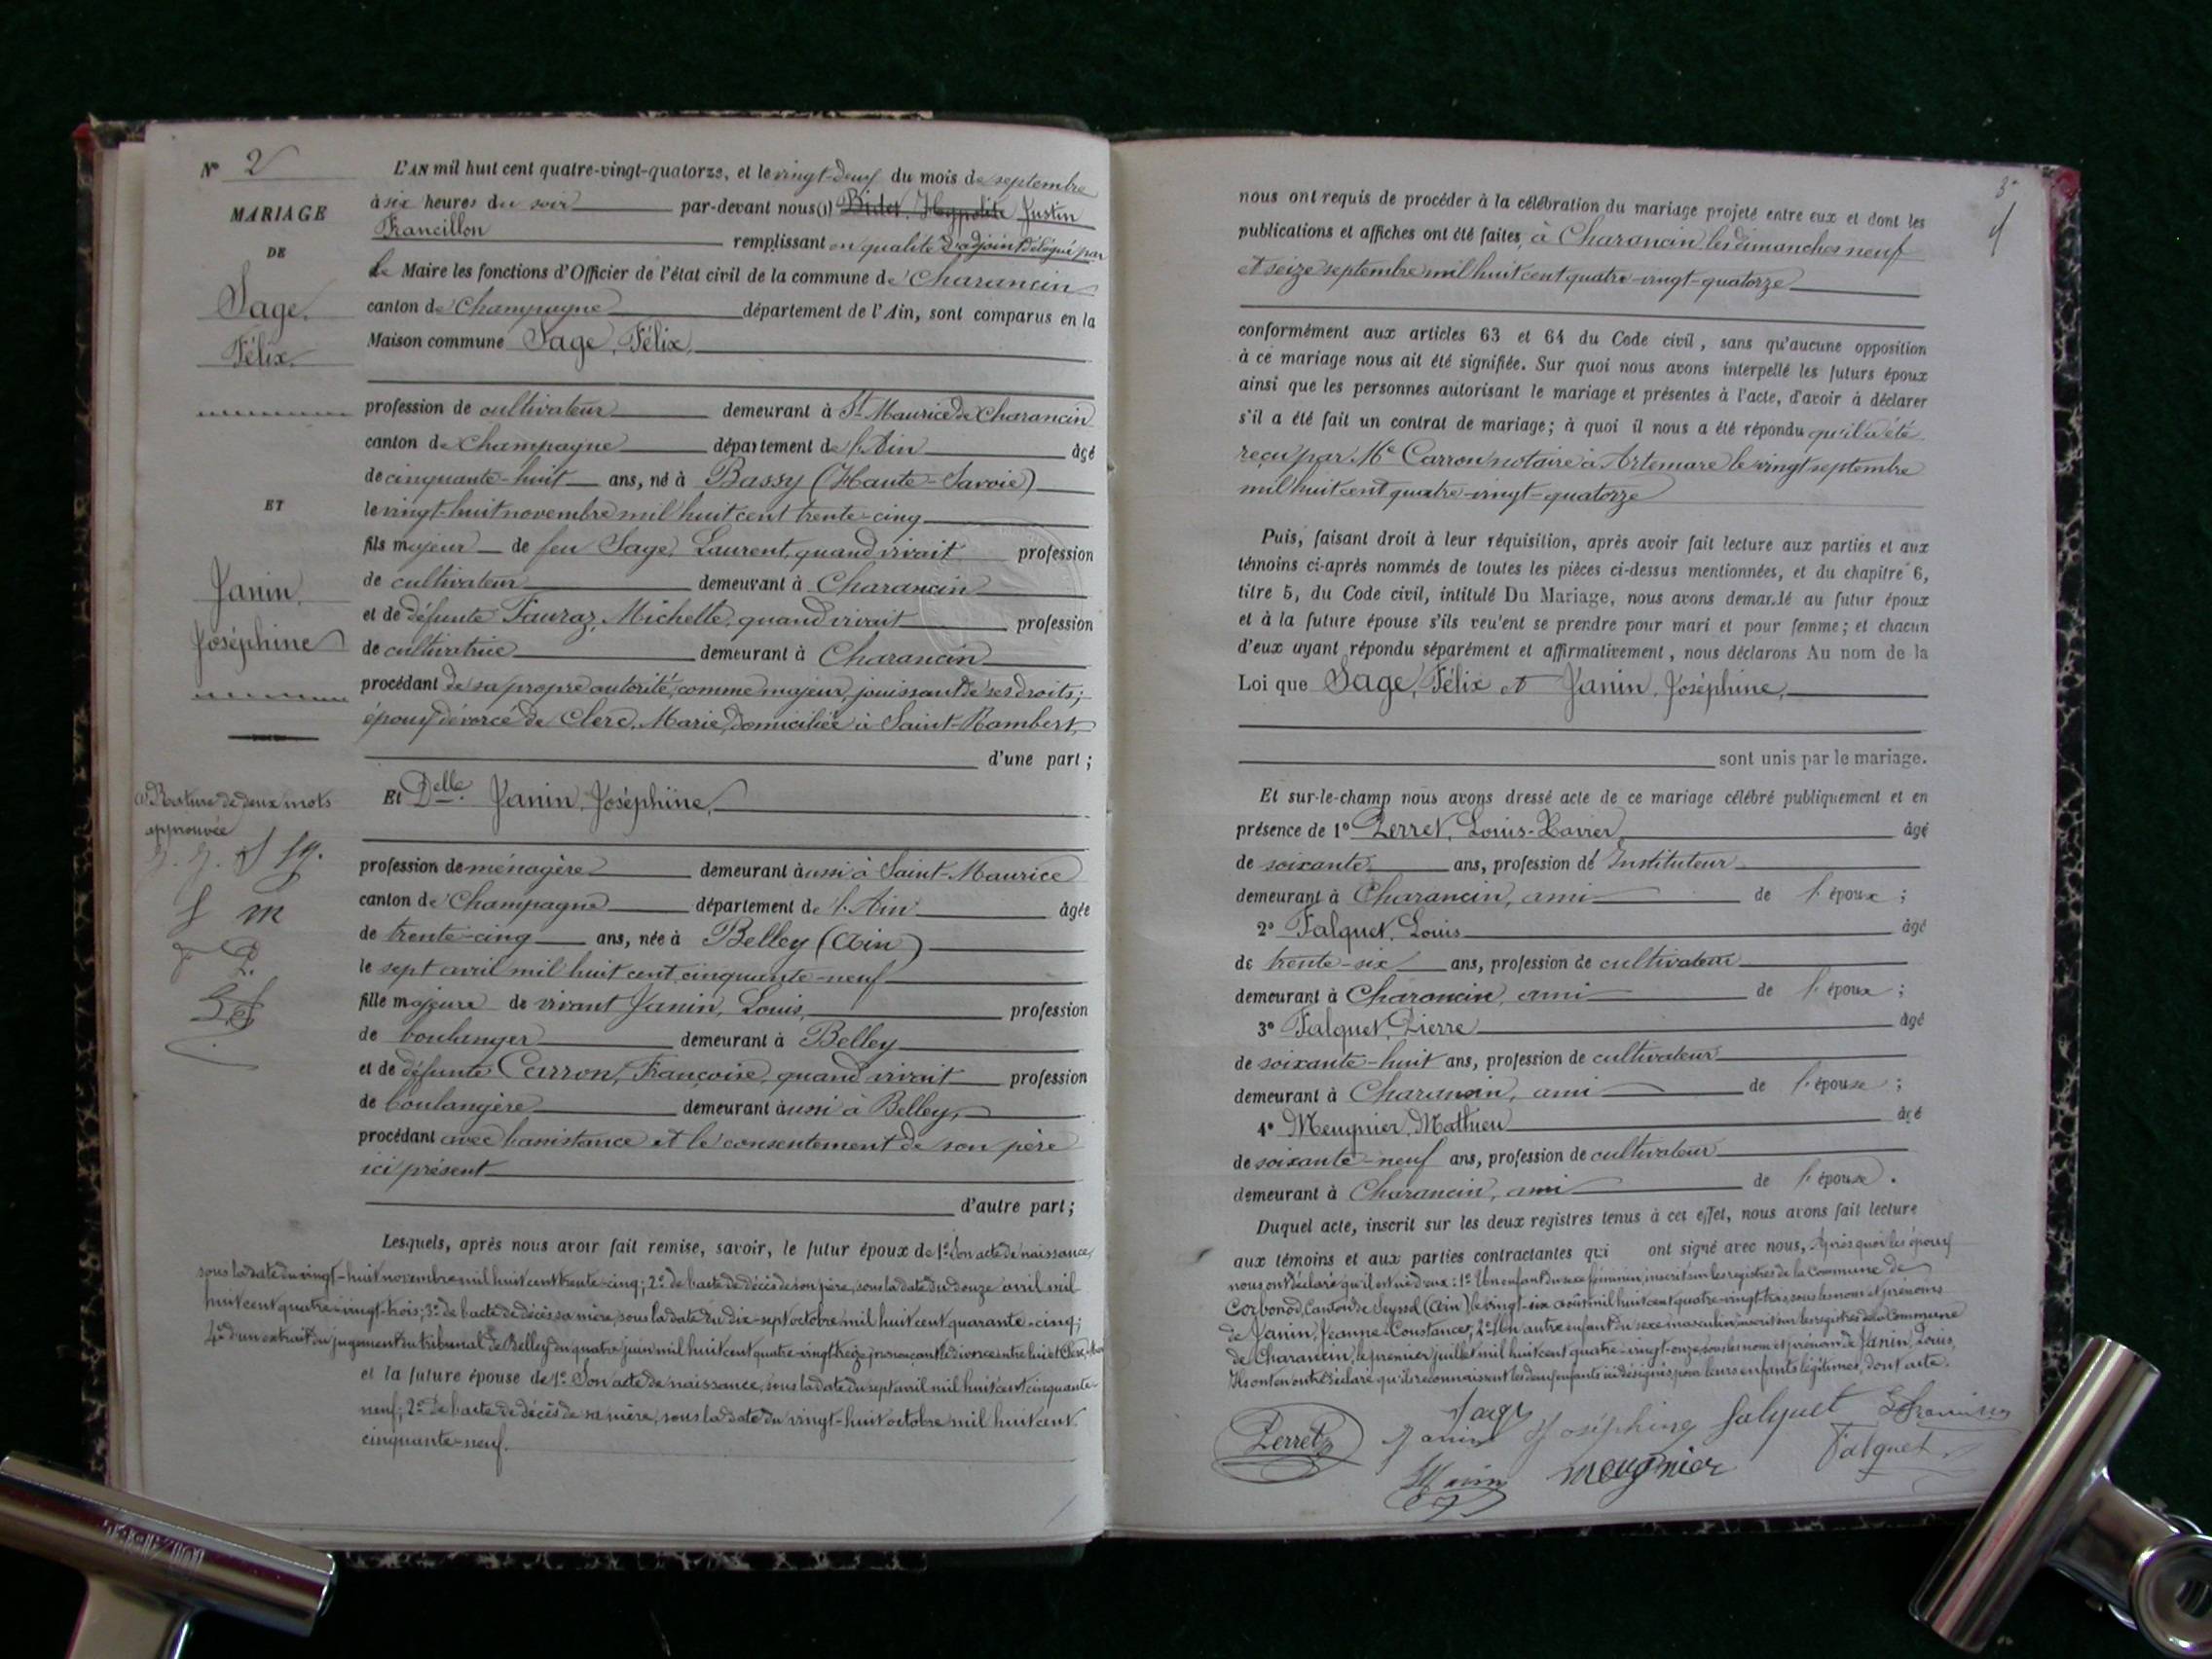 N° 2
MARIAGE
DE
Sage,
Félix
ET
Janin,
Joséphine
(1) Rature de deux mots
approuvée
L'AN mil huit cent quatre-vingt-quatorze, et le vingt-deux du mois de septembre
à six heures du soir par-devant nous (1) Bidet, Hypolite Justin
Francillon remplissant en qualité d'adjoint délégué par
le Maire les fonctions d'Officier de l'état civil de la commune de Charancin
canton de Champagne département de l'Ain, sont comparus en la
Maison commune Sage, Félix,
profession de cultivateur demeurant à St-Maurice de Charancin
canton de Champagne département de l'Ain âgé
de cinquante-huit ans, né à Bassy (Haute-Savoie)
le vingt-huit novembre mil huit cent trente-cinq
fils majeur de feu Sage, Laurent, quand vivait profession
de cultivateur demeurant à Charancin
et de défunte Fauraz, Michelle, quand vivait profession
de cultivatrice demeurant à Charancin
procédant de sa propre autorité, comme majeur, jouissant de ses droits;
époux divorcé de Clerc, Marie, domiciliée à Saint-Rambert,
d'une part ;
Et Delle Janin, Joséphine,
profession de ménagère demeurant à aussi à Saint-Maurice
canton de Champagne département de l'Ain âgée
de trente-cinq ans, née à Belley (Ain)
le sept avril mil huit cent cinquante-neuf
fille majeure de vivant Janin, Louis, profession
de boulanger demeurant à Belley
et de défunte Carron, Françoise, quand vivait profession
de boulangère demeurant à aussi à Belley,
procédant avec l'assistance et le consentement de son père
ici présent
d'autre part ;
Lesquels, après nous avoir fait remise, savoir, le futur époux de 1° Son acte de naissance,
sous la date du vingt-huit novembre mil huit cent trente-cinq; 2° de l'acte de décès de son père, sous la date du douze avril mil
huit cent quatre-vingt-trois; 3° de l'acte de décès sa mère, sous la date du dix-sept octobre mil huit cent quarante-cinq;
4° d'un extrait du jugement du tribunal de Belley du quatre juin mil huit cent quatre-vingt-treize prononçant le divorce entre lui et Clerc,
et la future épouse de 1° Son acte de naissance, sous la date du sept avril mil huit cent cinquante-
neuf; 2° de l'acte de décès de sa mère, sous la date du vingt-huit octobre mil huit cent
cinquante-neuf.
3
nous ont requis de procéder à la célébration du mariage projeté entre eux et dont les
publications et affiches ont été faites, à Charancin les dimanches neuf
et seize septembre mil huit cent quatre-vingt-quatorze
conformément aux articles 63 et 64 du Code civil, sans qu'aucune opposition
à ce mariage nous ait été signifiée. Sur quoi nous avons interpellé les futurs époux
ainsi que les personnes autorisant le mariage et présentes à l'acte, d'avoir à déclarer
s'il a été fait un contrat de mariage ; à quoi il nous a été répondu qu'il a été
reçu par Me Carron notaire à Artemare le vingt septembre
mil huit cent quatre-vingt-quatorze
Puis, faisant droit à leur réquisition, après avoir fait lecture aux parties et aux
témoins ci-après nommés de toutes les pièces ci-dessus mentionnées, et du chapitre 6,
titre 5, du Code civil, intitulé Du Mariage, nous avons demandé au futur époux
et à la future épouse s'ils veulent se prendre pour mari et pour femme ; et chacun
d'eux ayant répondu séparément et affirmativement, nous déclarons Au nom de la
Loi que Sage, Félix et Janin, Joséphine,
sont unis par le mariage.
Et sur-le-champ nous avons dressé acte de ce mariage célébré publiquement et en
présence de 1° Perret, Louis-Xavier, âgé
de soixante ans, profession de Instituteur
demeurant à Charancin, ami de l'époux ;
2° Falquet, Louis âgé
de trente-six ans, profession de cultivateur
demeurant à Charancin, ami de l'époux ;
3° Falquet, Pierre âgé
de soixante-huit ans, profession de cultivateur
demeurant à Charancin, ami de l'épouse ;
4° Meugnier, Mathieu âgé
de soixante-neuf ans, profession de cultivateur
demeurant à Charancin, ami de l'épouse .
Duquel acte, inscrit sur les deux registres tenus à cet effet, nous avons fait lecture
aux témoins et aux parties contractantes qui ont signé avec nous, Après quoi les époux
nous ont déclaré qu'il est né d'eux : 1° Un enfant du sexe féminin, inscrit sur les registres de la Commune de
Corbonod, Canton de Seyssel (Ain) le vingt-six août mil huit cent quatre-vingt-trois, sous les nom et prénoms
de Janin, Jeanne-Constance; 2° Un autre enfant du sexe masculin, inscrit sur les registres de la Commune
de Charancin, le premier juillet mil huit cent quatre-vingt-onze, sous les nom et prénom de Janin, Louis,
Ils ont en outre déclaré qu'ils reconnaissent les deux enfants ici désignés, pour leurs enfants légitimes, dont acte.
Sage
Perret Janin Joséphine Falquet Francillon
Janin meugnier Falquet